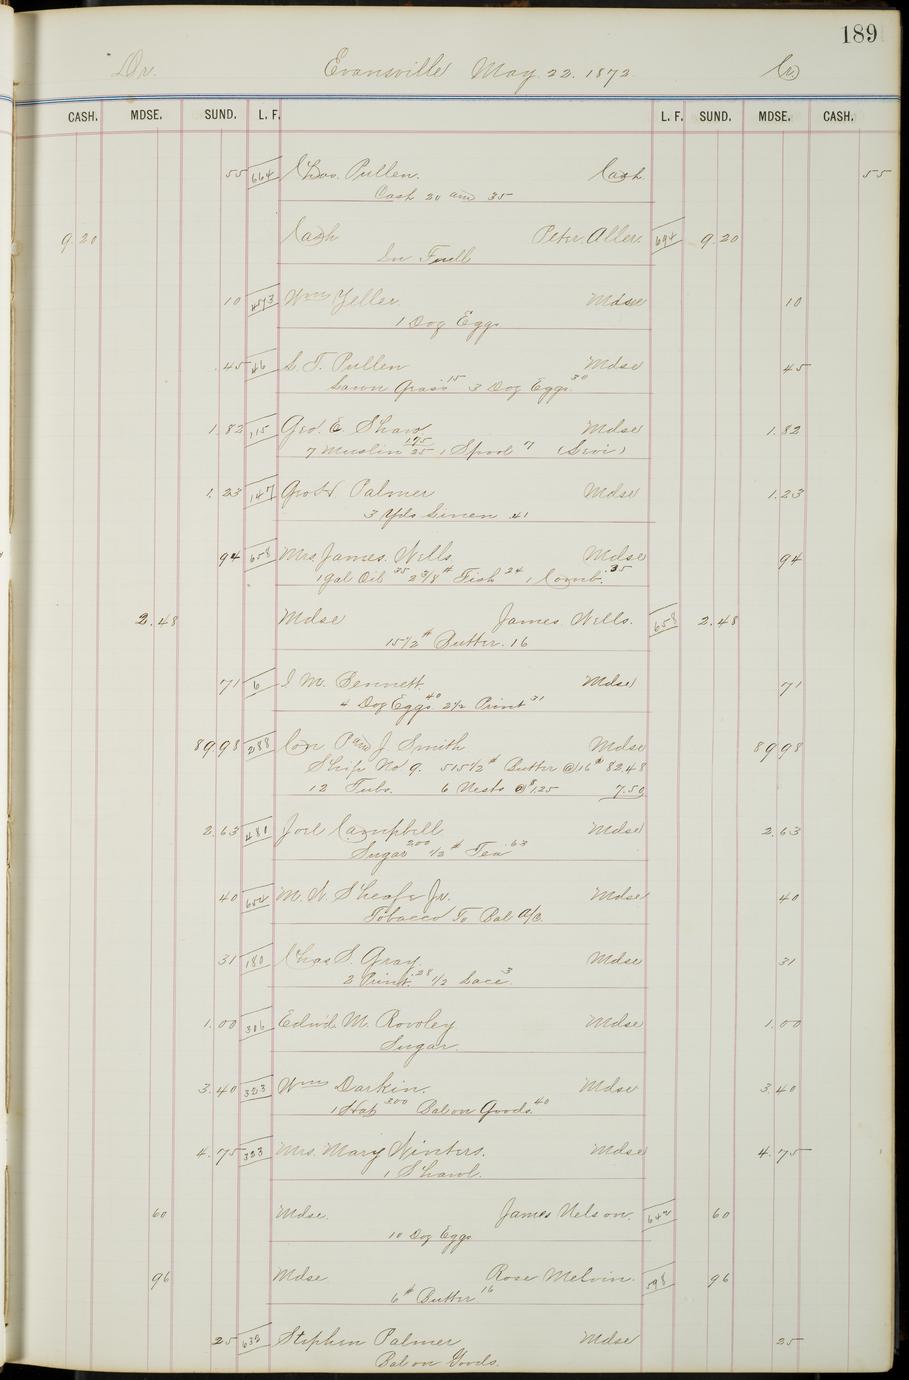 189
Dr. Evansville May 22. 1872 Cr
CASH. MDSE. SUND. L. F. L. F. SUND. MDSE. CASH.
55 664 Chas. Pullen. Cash 55
Cash 20 and 35
9.20 Cash Peter Aller. 694 9.20
In Full
10 Wm Zeller Mdse 10
1 Doz Eggs
.45 46 S. T. Pullen Mdse 45
Lawn Grass 15 3 Doz Eggs 30
1.82 115 Geo. E. Shaw Mdse 1.82
7 Muslin 25 175 1 Spool 7
1.23 147 Geo W. Palmer Mdse 1.23
3 Yds Linen .41
94 658 Mrs. James. Wills Mdse 94
1 gal Oil 35 2 3/8 # Fish 24 1 Comb. 35
2.48 Mdse James Wills. 658 2.48
15 1/2 # Butter. 16
71 6 I. M. Bennett. Mdse 71
4 Doz Eggs 40 2 1/2 Print 31
89.98 288 Con P and J Smith Mdse 89.98
Ship No. 9. 515 1/2 # Butter @ 16 # 82.48
12 Tubs. 6 Nests @ $1.25 7.50
2.63 481 Joel Campbell Mdse 2.63
Sugar 2.00 1/2 # Tea .63
40 652 M. W. Sheafe Jr. Mdse 40
Tobacco To Bal A/C.
31 180 Chas S. Gray. Mdse 31
2 Print. .28 1/2 Lace 3
1.00 316 Edwd. M. Rowley Mdse 1.00
Sugar.
3.40 323 Wm Darkin. Mdse 3.40
1 Hat 3.00 Bal on Goods. 40
4.75 323 Mrs. Mary Winters. Mdse 4.75
1 Shawl.
60 Mdse. James Nelson. 642 60
10 Doz Eggs
96 Mdse Rose Melvin. 598 96
6 # Butter 16
25 632 Stephen Palmer Mdse 25
Bal on Goods.